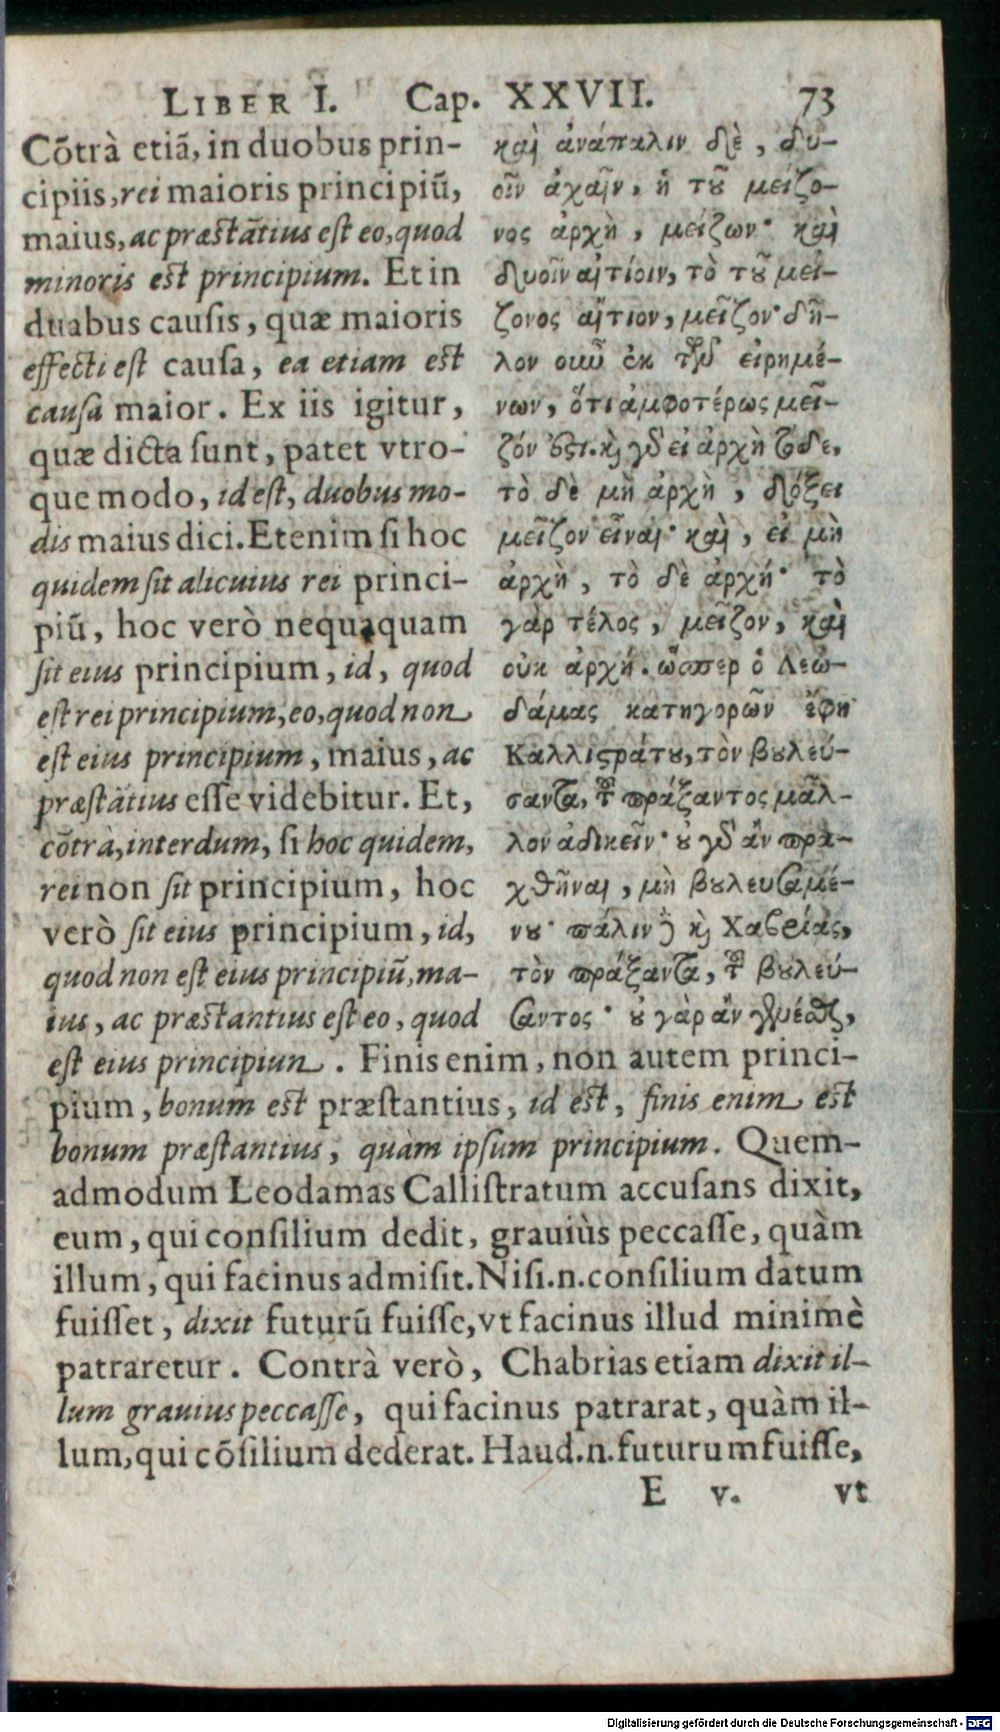 LIBER I. Cap. XXVII. 73
Cõtrà etiã, in duobus prin-
cipiis, rei maioris principiũ,
maius, ac præstãtius est eo, quod
minoris est principium. Et in
duabus causis, quæ maioris
effecti est causa, ea etiam est
causa maior. Ex iis igitur,
quæ dicta sunt, patet vtro-
que modo, id est, duobus mo-
dis maius dici. Etenim si hoc
quidem sit alicuius rei princi-
piũ, hoc verò nequaquam
sit eius principium, id, quod
est rei principium, eo, quod non
est eius principium, maius, ac
præstãtius esse videbitur. Et,
cõtrà, interdum, si hoc quidem,
rei non sit principium, hoc
verò sit eius principium, id,
quod non est eius principiũ, ma-
ius, ac præstantius est eo, quod
καὶ ἀνάπαλιν δὲ, δυ-
οῖν ἀχαῖν, ἡ τοῦ μείζο-
νος ἀρχὴ, μείζων· καὶ
δυοῖν αἰτίοιν, τὸ τοῦ μεί-
ζονος αἴτιον, μεῖζον· δῆ-
λον οὖν ἐκ τῶν εἰρημέ-
νων, ὅτι ἀμφοτέρως μεῖ-
ζόν ἐστι. καὶ γὰρ εἰ ἀρχὴ τόδε,
τὸ δὲ μὴ ἀρχὴ, δόξει
μεῖζον εἶναι· καὶ, εἰ μὴ
ἀρχὴ, τὸ δὲ ἀρχή· τὸ
γὰρ τέλος, μεῖζον, καὶ
οὐκ ἀρχή. ὥσπερ ὁ Λεω-
δάμας κατηγορῶν ἔφη
Καλλιστράτου, τὸν βουλεύ-
σαντα, τοῦ πράξαντος μᾶλ-
λον ἀδικεῖν· οὐ γὰρ ἂν πρα-
χθῆναι, μὴ βουλευσαμέ-
νου· πάλιν δὲ καὶ Χαβρίας,
τὸν πράξαντα, τοῦ βουλεύ-
σαντος· οὐ γὰρ ἂν γενέσθαι,
est eius principium. Finis enim, non autem princi-
pium, bonum est præstantius, id est, finis enim est
bonum præstantius, quàm ipsum principium. Quem-
admodum Leodamas Callistratum accusans dixit,
eum, qui consilium dedit, grauiùs peccasse, quàm
illum, qui facinus admisit. Nisi .n. consilium datum
fuisset, dixit futurũ fuisse, vt facinus illud minimè
patraretur. Contrà verò, Chabrias etiam dixit il-
lum grauius peccasse, qui facinus patrarat, quàm il-
lum, qui cõsilium dederat. Haud .n. futurum fuisse,
E v. vt
Digitalisierung gefördert durch die Deutsche Forschungsgemeinschaft - DFG